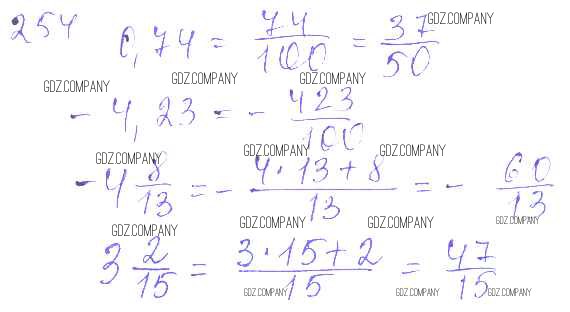 254 0,74 = 74/100 = 37/50 GDZ.COMPANY
GDZ.COMPANY GDZ.COMPANY GDZ.COMPANY
- 4,23 = - 423/100
GDZ.COMPANY GDZ.COMPANY GDZ.COMPANY
- 4 8/13 = - 4·13+8/13 = - 60/13
GDZ.COMPANY GDZ.COMPANY GDZ.COMPANY GDZ.COMPANY
3 2/15 = 3·15+2/15 = 47/15
GDZ.COMPANY GDZ.COMPANY GDZ.COMPANY